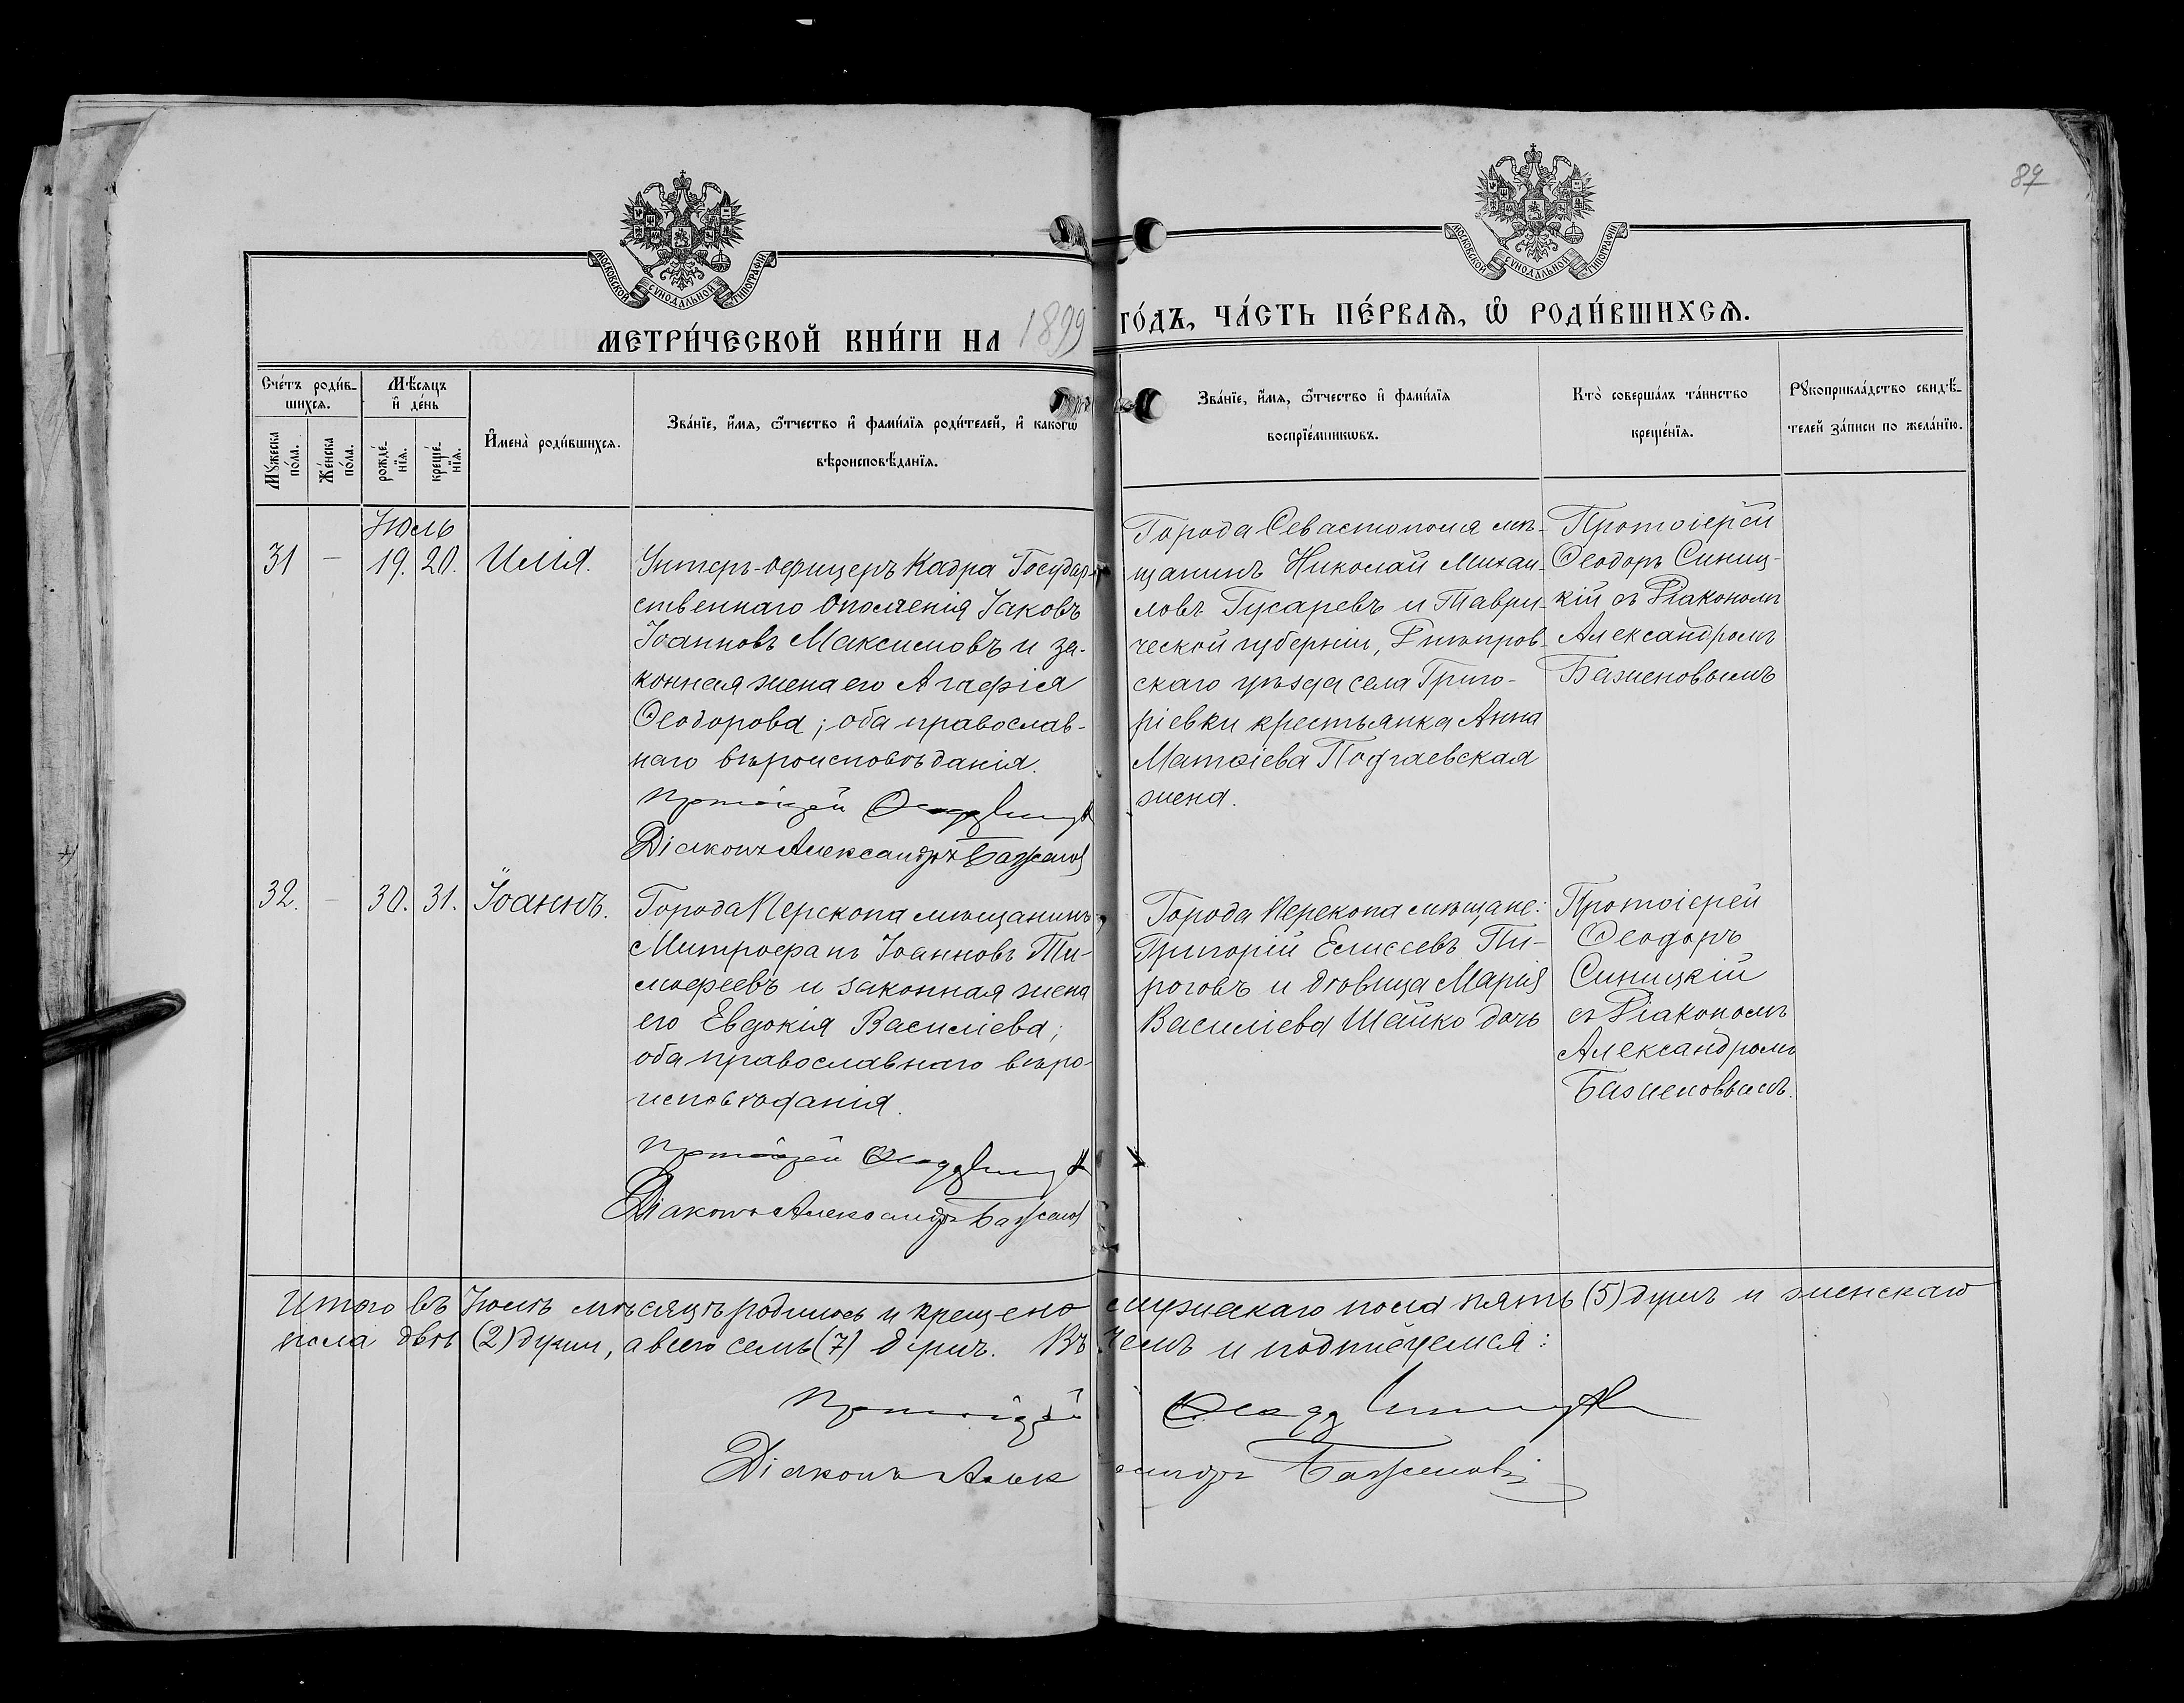 87
МОСКОВСКОЙ СѴНОДАЛЬНОЙ ТИПОГРАФІИ
МОСКОВСКОЙ СѴНОДАЛЬНОЙ ТИПОГРАФІИ
МЕТРИ́ЧЕСКОЙ КНИ́ГИ НА 1899 ГО́ДЪ, ЧА́СТЬ ПЕ́РВАѦ, Ѡ҆ РОДИ́ВШИХСѦ.
Сче́тъ роди́в-
шихсѧ.
Мꙋ́жеска по́ла.
Же́нска по́ла.
Мѣ́сѧцъ
и҆ де́нь
рожде́-
нїѧ.
креще́-
нїѧ.
И҆мена̀ роди́вшихсѧ.
Зва́нїе, и҆́мѧ, ѻ҆́тчество и҆ фами́лїѧ роди́телей, и҆ како́гѡ
вѣроисповѣ́данїѧ.
Зва́нїе, и҆́мѧ, ѻ҆́тчество и҆ фами́лїѧ
воспрїе́мникѡвъ.
Кто̀ соверша́лъ та́инство
креще́нїѧ.
Рꙋкоприкла́дство свидѣ́-
телей за́писи по жела́нїю.
Іюль
31 – 19. 20. Илія.
Унтеръ-офицеръ Кадра Государ-
ственнаго Ополченія Іаковъ
Іоанновъ Максимовъ и за-
конная жена его Агафія
Ѳеодорова; оба православ-
наго вѣроисповѣданія.
Протоіерей Ѳеодоръ Синицкій
Діаконъ Александръ Баженов
Города Севастополя мѣ-
щанинъ Николай Михаи-
ловъ Гусаревъ и Таври-
ческой губерніи, Днѣпров-
скаго уѣзда села Григо-
ріевки крестьянка Анна
Матѳіева Подгаевская
жена.
Протоіерей
Ѳеодоръ Синиц-
кій съ Діакономъ
Александромъ
Баженовымъ
32. – 30. 31. Іоаннъ.
Города Перекопа мѣщанинъ
Митрофанъ Іоанновъ Ти-
мофеевъ и законная жена
его Евдокія Василіева;
оба православнаго вѣро-
исповѣданія.
Протоіерей Ѳеодоръ Синицкій
Діаконъ Александръ Баженов
Города Перекопа мѣщане:
Григорій Елисеевъ Пи-
роговъ и дѣвица Марія
Василіева Шайко дочь
Протоіерей
Ѳеодоръ
Синицкій
съ Діакономъ
Александромъ
Баженовымъ.
Итого въ Іюлѣ мѣсяцѣ родилось и крещено мужескаго пола пять (5) душъ и женскаго
пола двѣ (2) души, а всего семь (7) душъ. Въ чемъ и подписуемся:
Протоіерей Ѳеодоръ Синицкій
Діаконъ Александръ Баженовъ